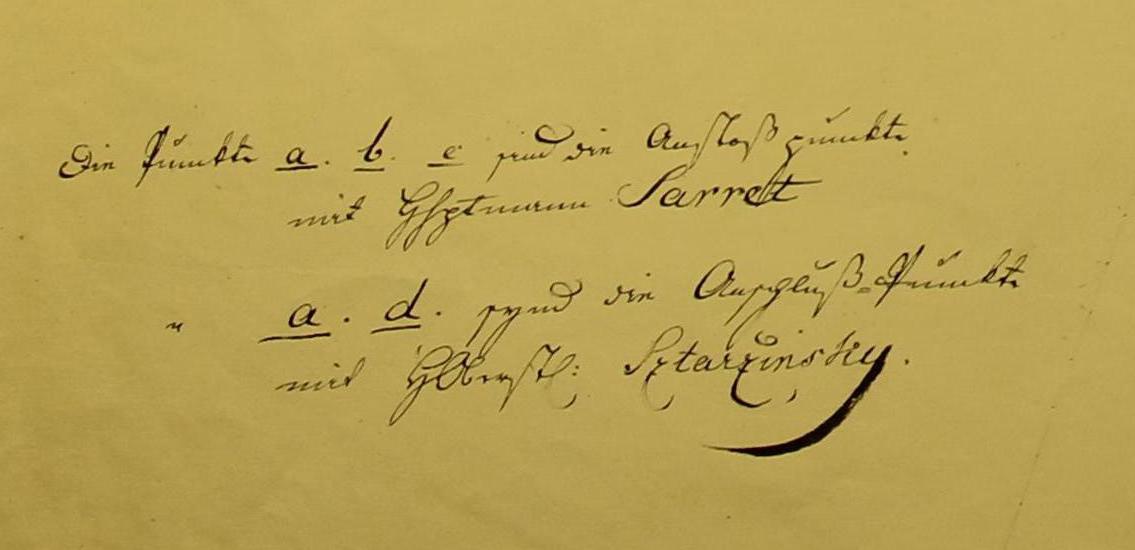 Die Punkte a. b. c sind die Anstoß punkte
mit HHptmann Sarret
" a. d. synd die Anschluß=Punkte
mit HOberstl: Sztarzinsky.